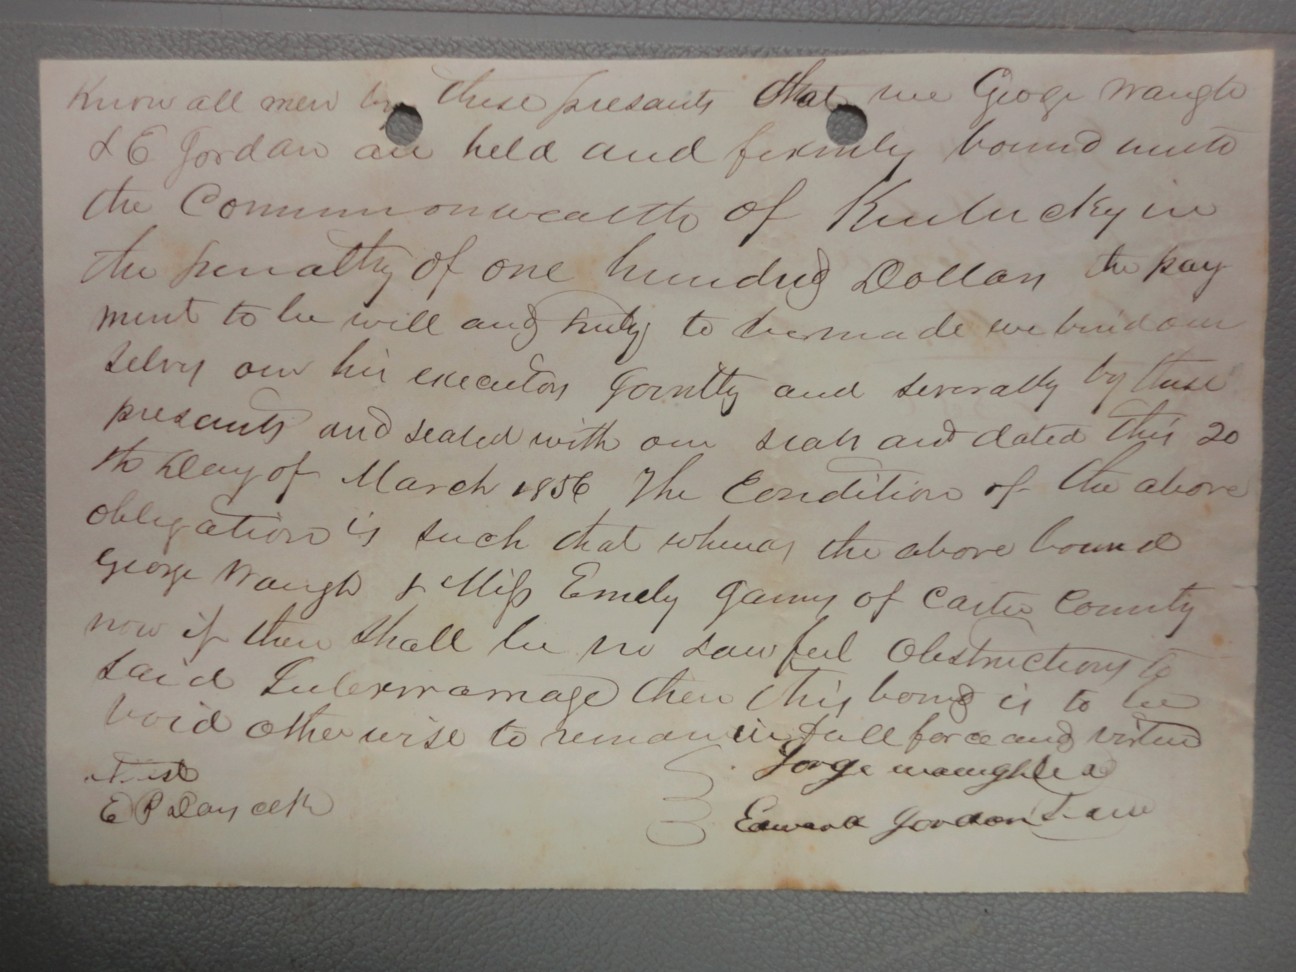 Know all men by these presants that we George Waugh
& E Jordan are held and firmly bound unto
the Commonwealth of Kentucky in
the penalty of one hundred Dollars the pay
ment to be will and truly to be made we bind our
selvs our hir executors Jointly and severally by these
presants and sealed with our seals and dated this 20
th Day of March 1856 The Condition of the above
obligation is such that whereas the above bound
George Waugh & Miss Emely of Carter County
now if there shall be no lawful obstructions to
said Intermarriage then this bond is to be
void otherwise to remain in full force and virtue
Test George Waugh
E P Day clk Edward Jordan Seal